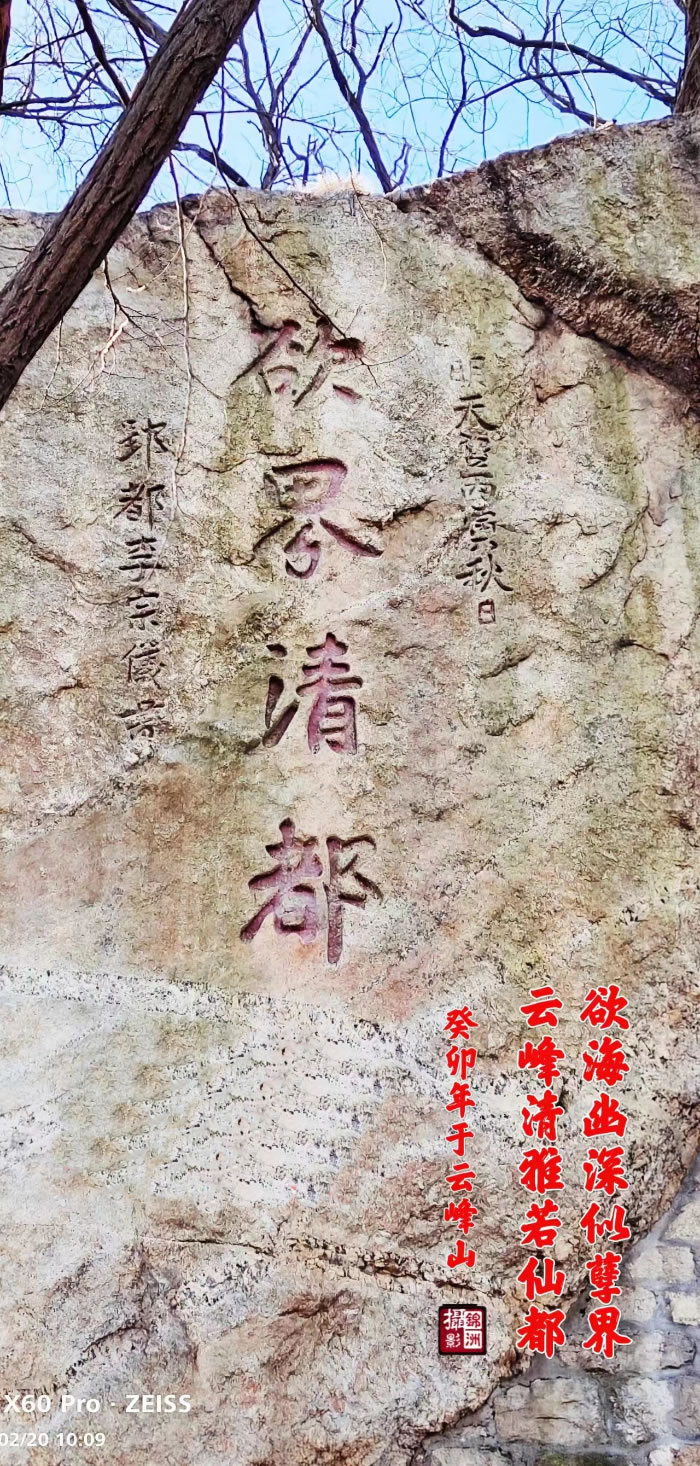 明天启丙寅秋日
欲界清都
都李宗儀書
欲海幽深似孽界
云峰清雅若仙都
癸卯年于云峰山
錦洲
攝影
X60 Pro · ZEISS
02/20 10:09